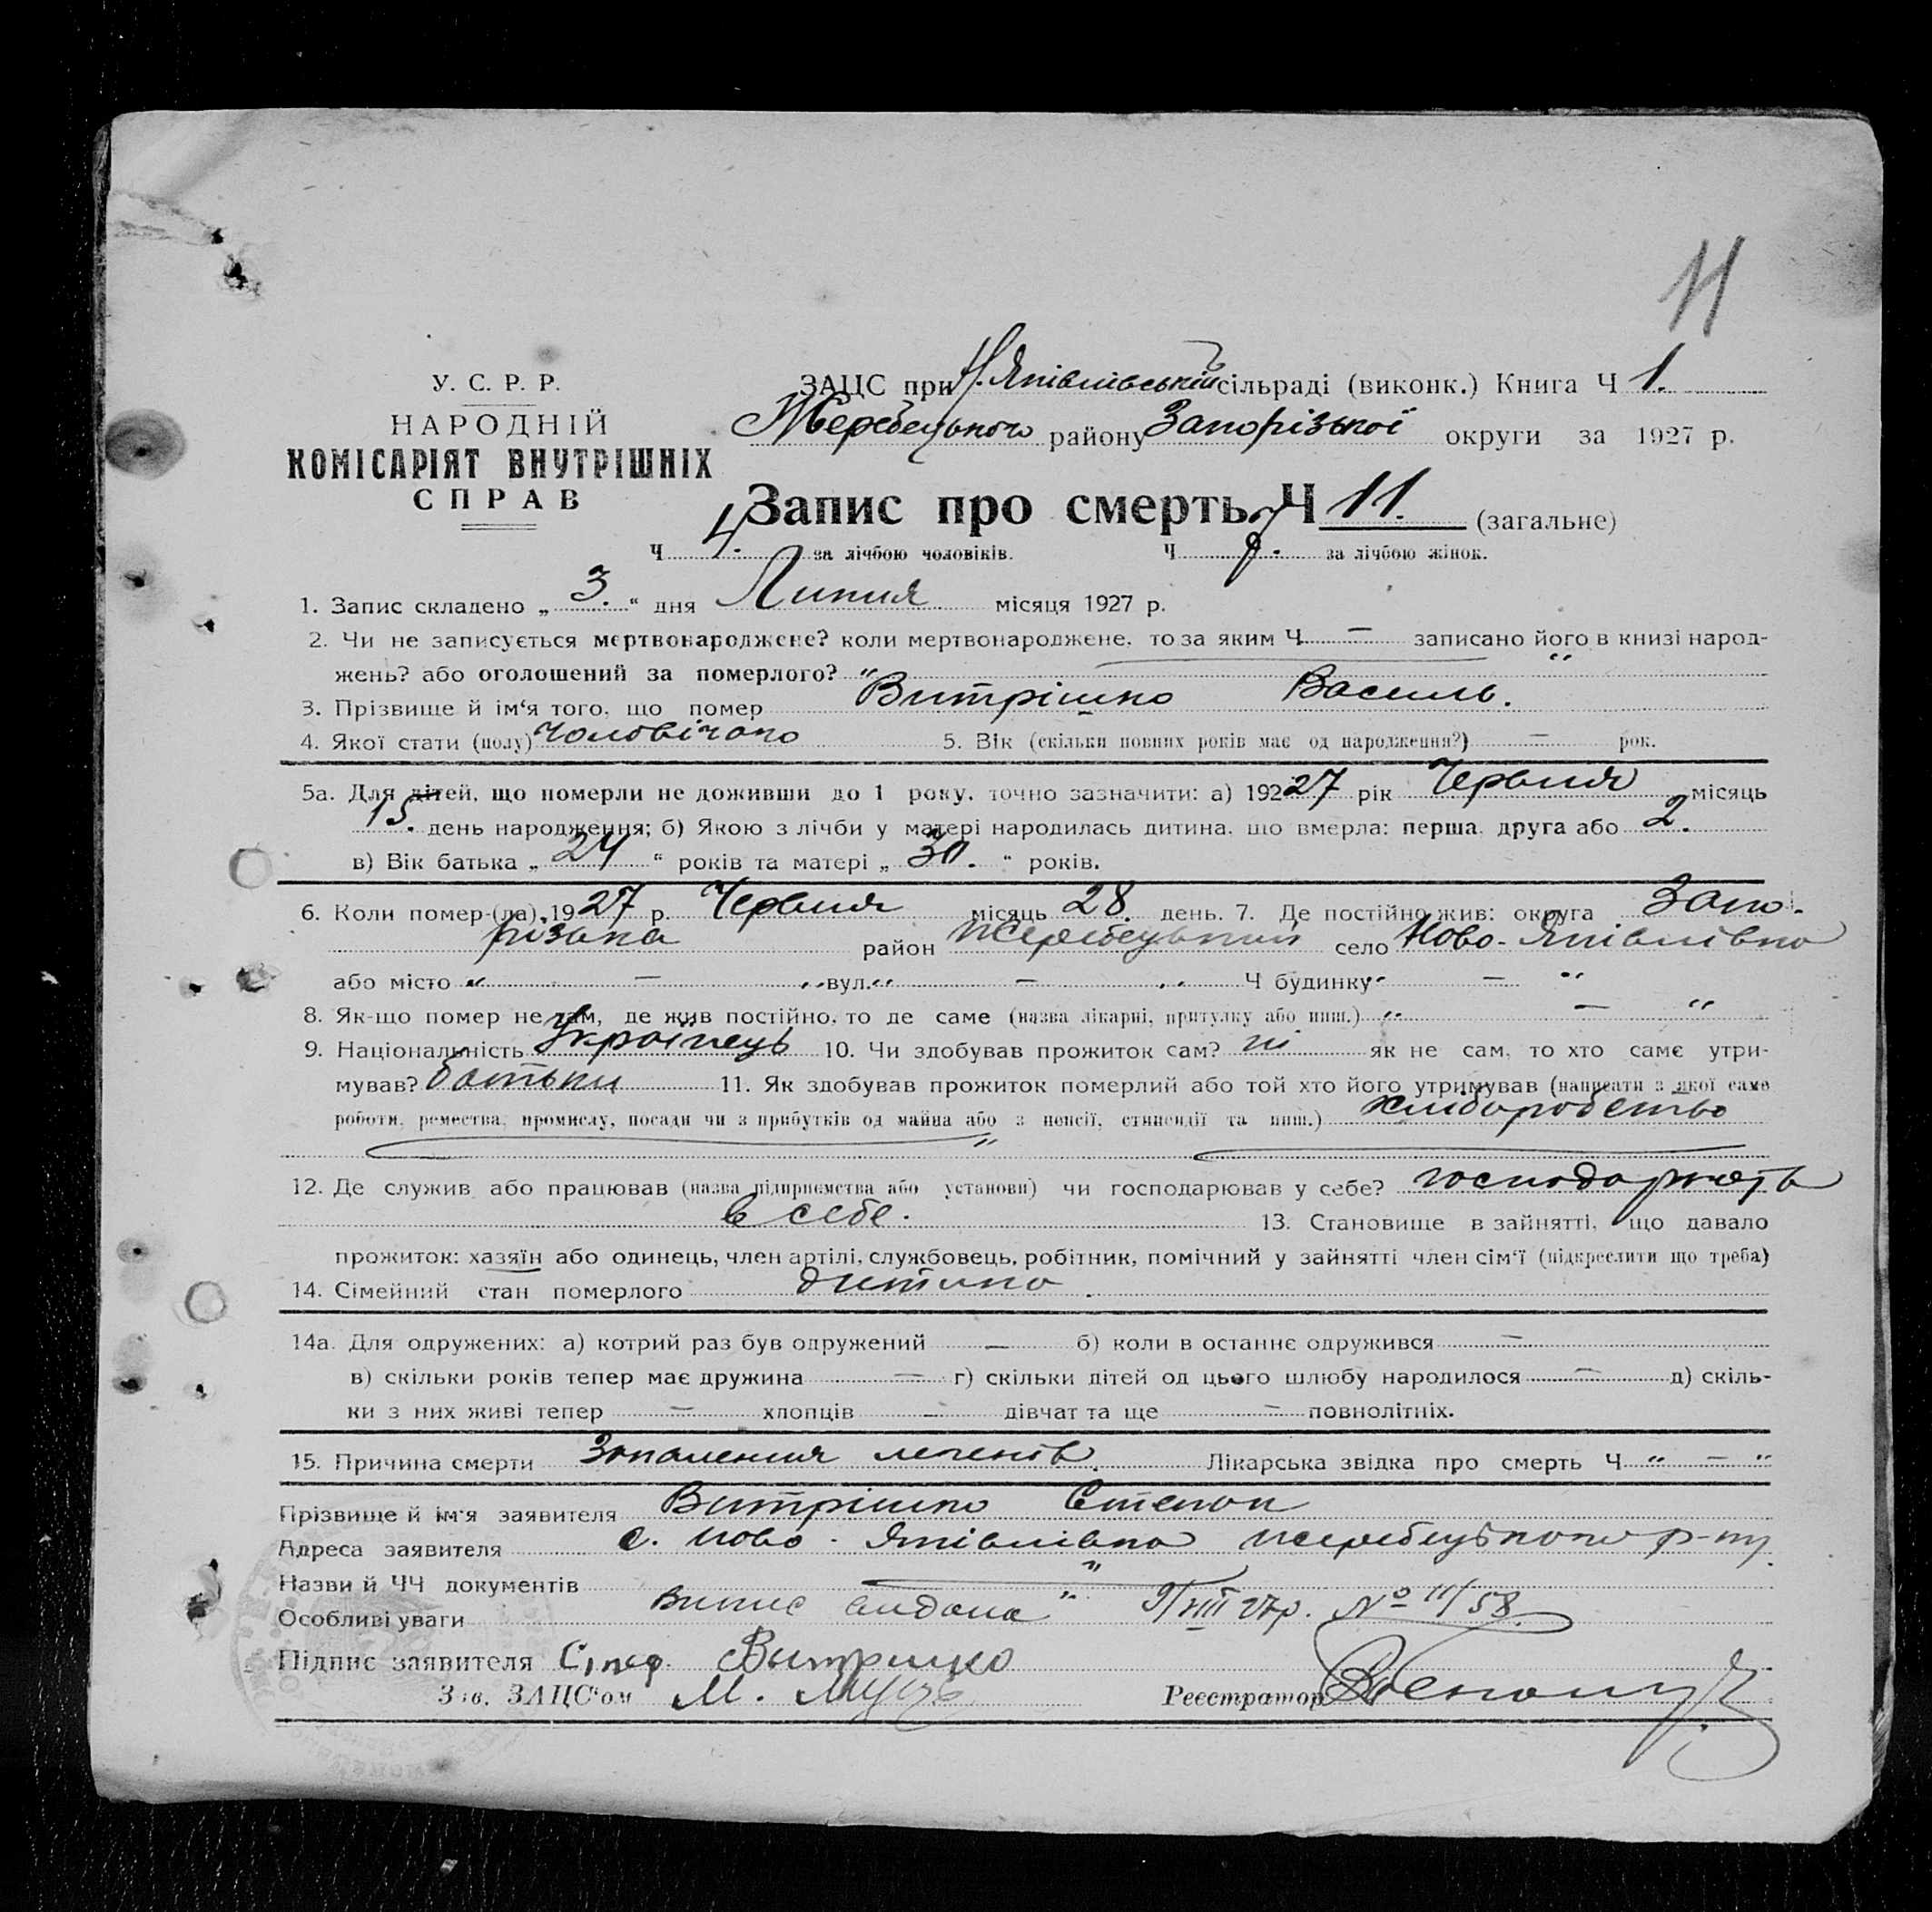 11
У. С. Р. Р.
НАРОДНІЙ
КОМІСАРІЯТ ВНУТРІШНІХ
СПРАВ
ЗАЦС при Н. Яківлівській сільраді (виконк.) Книга Ч 1.
Жеребецького району Запорізької округи за 1927 р.
Запис про смерть Ч 11. (загальне)
Ч 4. за лічбою чоловіків. Ч 7. за лічбою жінок.
1. Запис складено „ 3. “ дня Липня місяця 1927 р.
2. Чи не записується мертвонароджене? коли мертвонароджене, то за яким Ч — записано його в книзі народ-
жень? або оголошений за померлого? „ “
3. Прізвище й ім‘я того, що помер Витрішко Василь.
4. Якої стати (полу) чоловічого 5. Вік (скільки повних років має од народження?) — рок.
5а. Для дітей, що померли не доживши до 1 року, точно зазначити: а) 19227 рік Червня місяць
15. день народження; б) Якою з лічби у матері народилась дитина, що вмерла: перша, друга або 2.
в) Вік батька „ 24 “ років та матері „ 30. “ років.
6. Коли помер-(ла) 1927 р. Червня місяць 28. день. 7. Де постійно жив: округа Запо-
різька район Жеребецький село Ново-Яківлівка
або місто „ — “ вул. „ — “ Ч будинку „ — “
8. Як-що помер не там, де жив постійно, то де саме (назва лікарні, притулку або инш.) „ — “
9. Національність Українець 10. Чи здобував прожиток сам? ні як не сам, то хто саме утри-
мував? батьки 11. Як здобував прожиток померлий або той хто його утримував (написати з якої саме
роботи, ремества, промислу, посади чи з прибутків од майна або з пенсії, стипендії та инш.) хліборобство
12. Де служив або працював (назва підприємства або установи) чи господарював у себе? господарюють
в себе. 13. Становище в зайнятті, що давало
прожиток: хазяїн або одинець, член артілі, службовець, робітник, помічний у зайнятті член сім‘ї (підкреслити що треба)
14. Сімейний стан померлого дитина.
14а. Для одружених: а) котрий раз був одружений — б) коли в останнє одружився —
в) скільки років тепер має дружина — г) скільки дітей од цього шлюбу народилося — д) скіль-
ки з них живі тепер — хлопців — дівчат та ще — повнолітніх.
15. Причина смерти Запалення легенів. Лікарська звідка про смерть Ч „ — “
Прізвище й ім‘я заявителя Витрішко Степан
Адреса заявителя с. Ново-Яківлівка Жеребецького р-ну.
Назви й ЧЧ документів „
Особливі уваги Випис видана 9/VIII 27р. № 11/58.
Підпис заявителя Витришко
Зав. ЗАЦС‘ом М.
Реєстратор